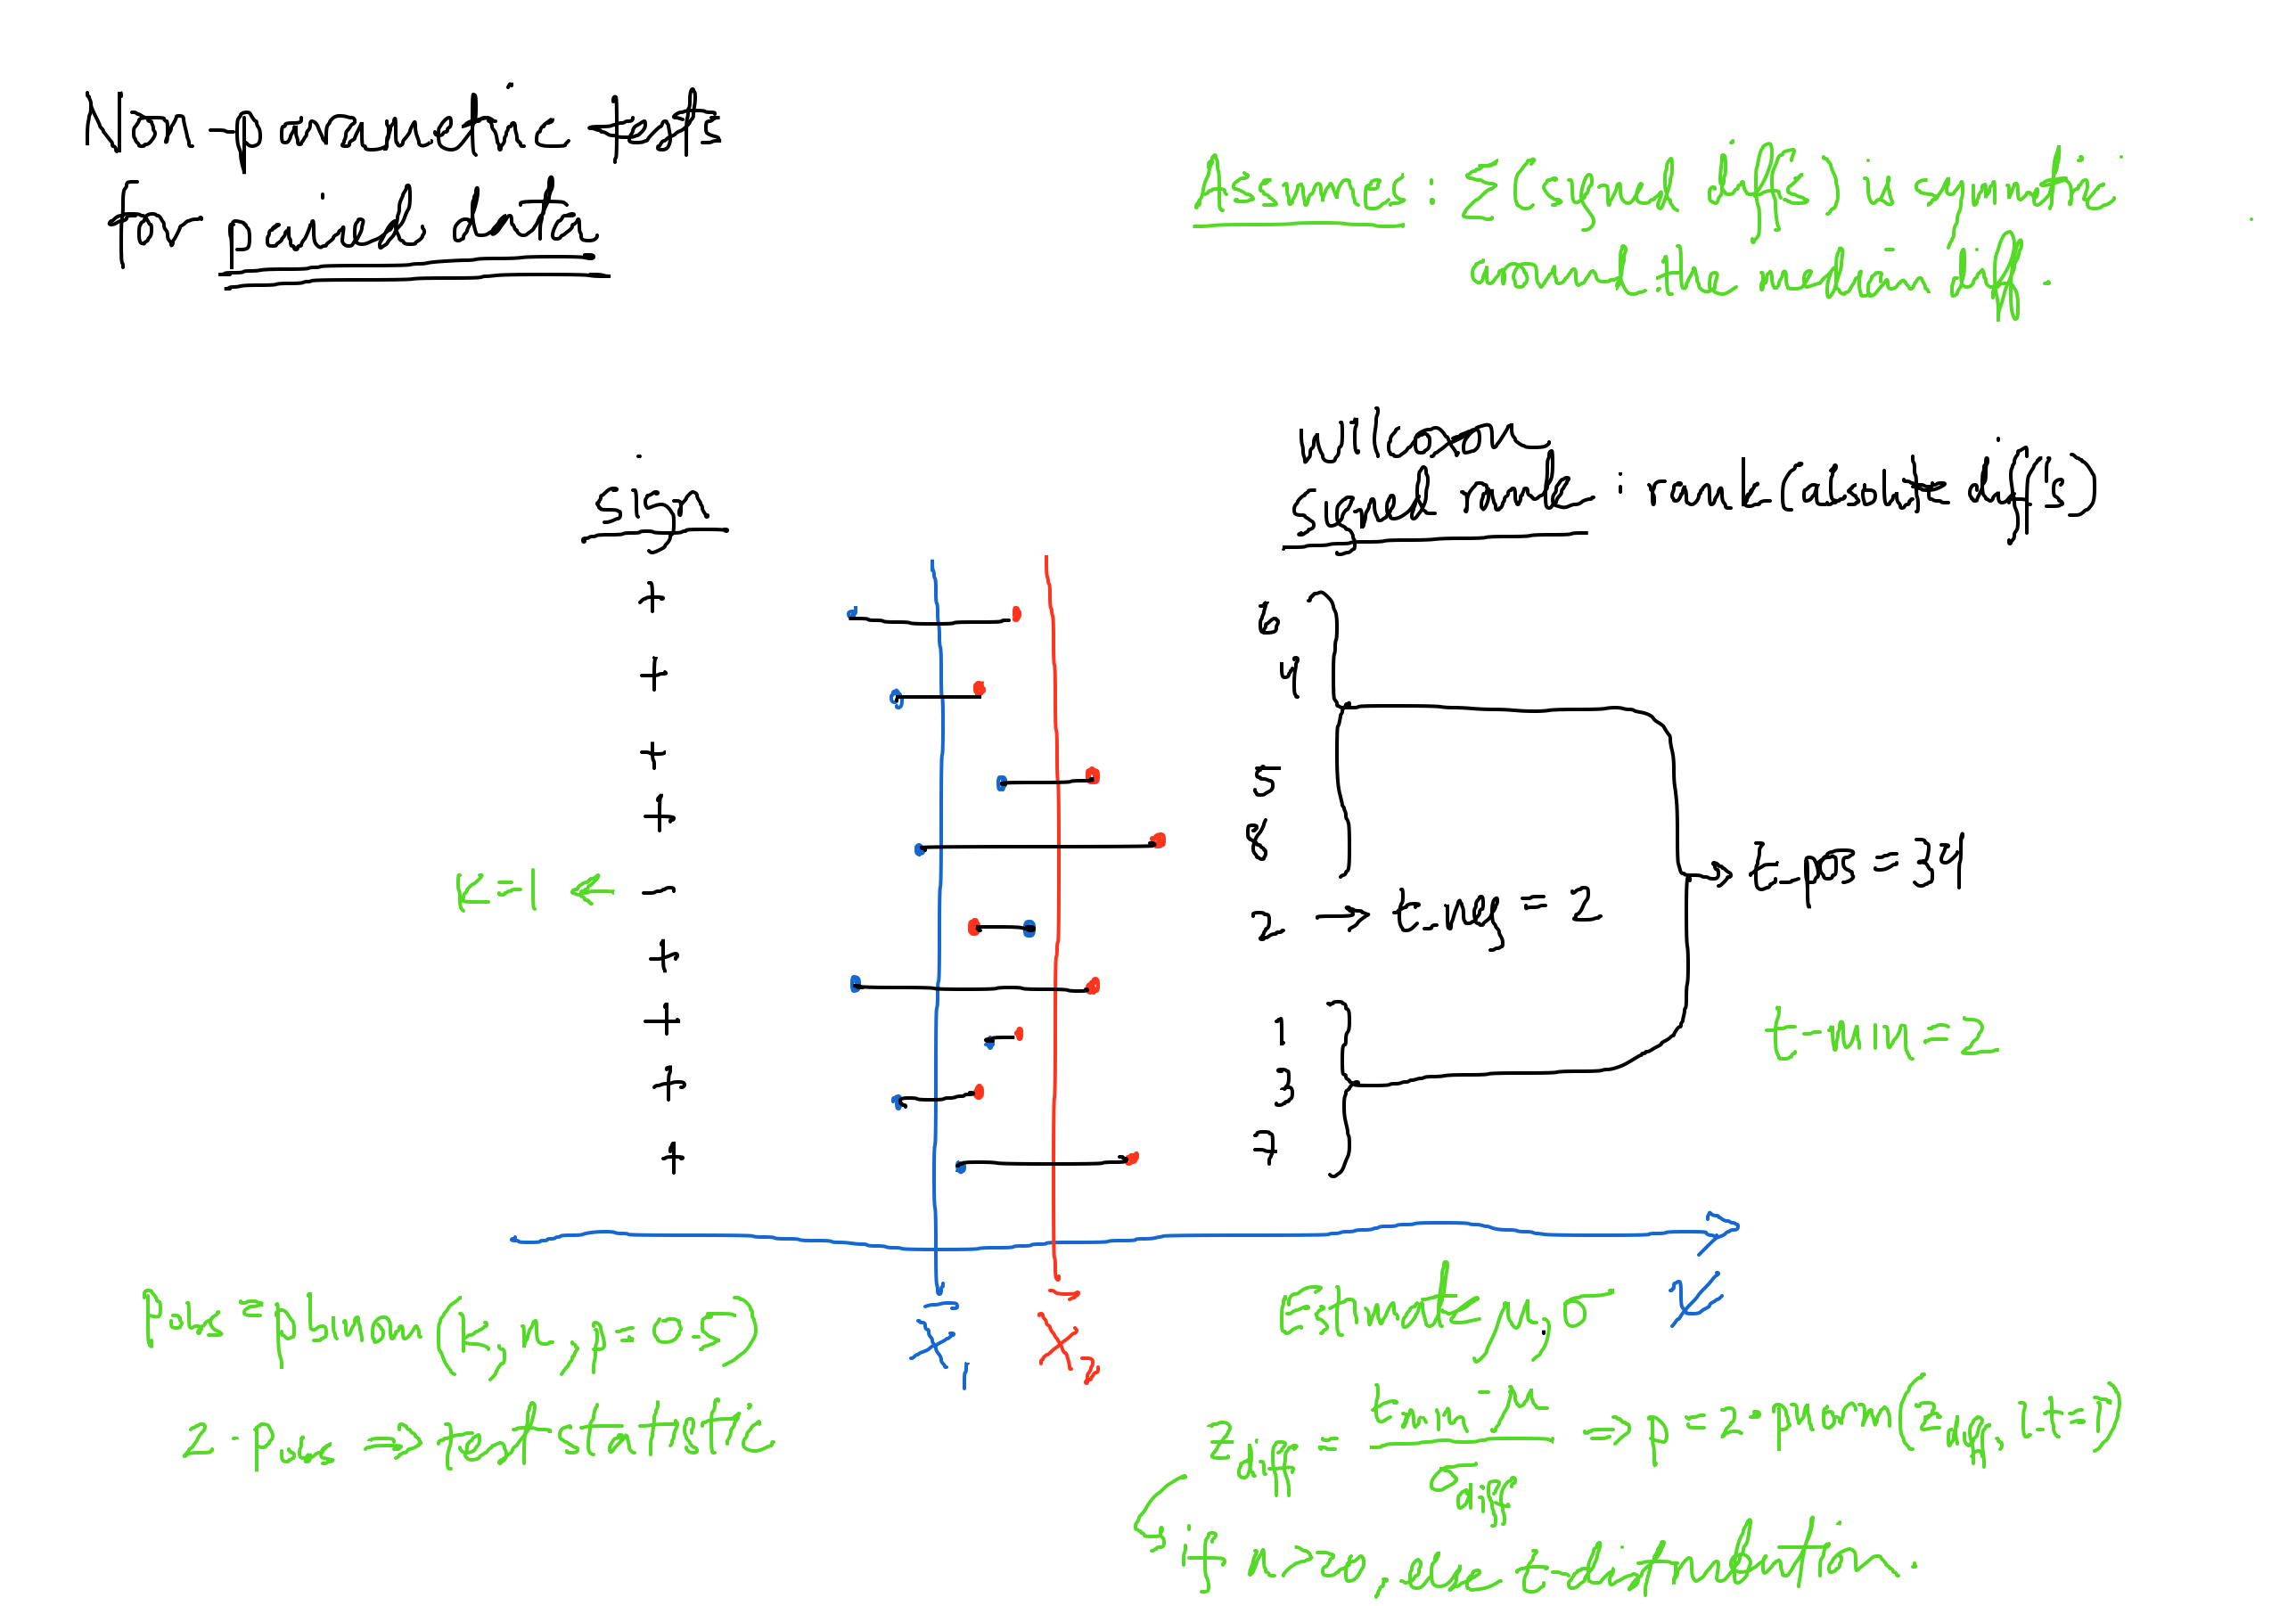 Non-parametric tests
for paired data
Assumes: Σ(signed diffs) is symmetric
around the median diff.
sign
wilcoxon
signed rank : rank(absolute diffs)
+
6
+
4
+
5
+
8
t_pos = 34
K=1 ← -
2 → t_neg = 2
+
+
1
t-min=2
+
3
+
7
x
X̄1
X̄2
Pneg = pbinom(k, n, p=0.5)
2 · pneg ⇒ test statistic
Estimate μ, σ
zdiff = tmin - μ / σdiff ⇒ p = 2 · pnorm(zdiff, l.t=T)
if n > 20, use t-distribution.